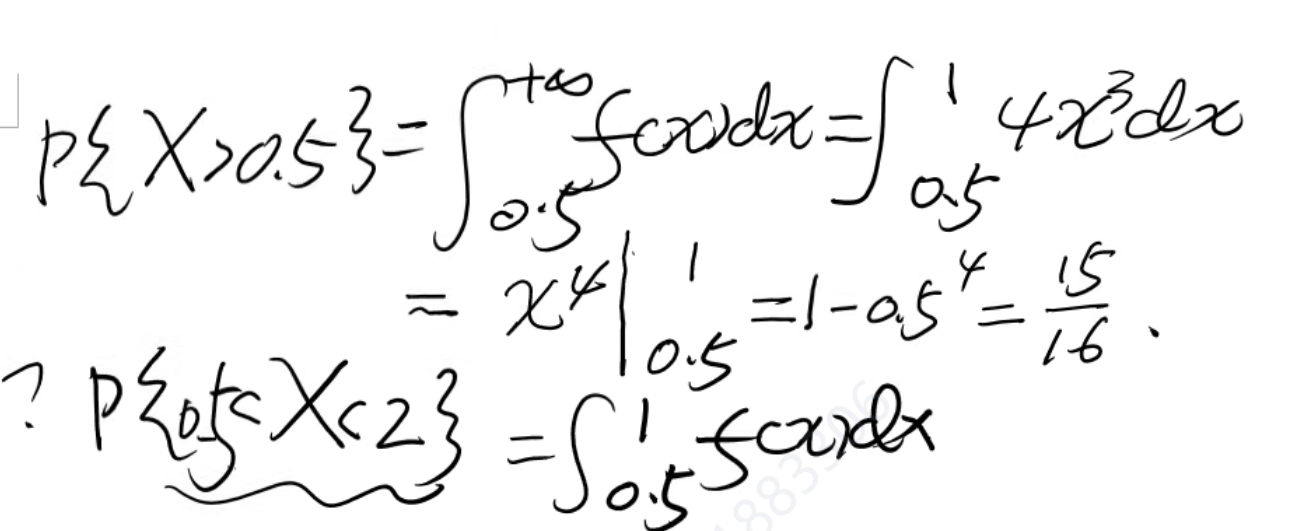 P{X>0.5}=∫_{0.5}^{+∞} f(x)dx=∫_{0.5}^{1} 4x³dx
= x⁴|_{0.5}^{1} =1-0.5⁴=15/16.
? P{0.5<X<2} =∫_{0.5}^{1} f(x)dx